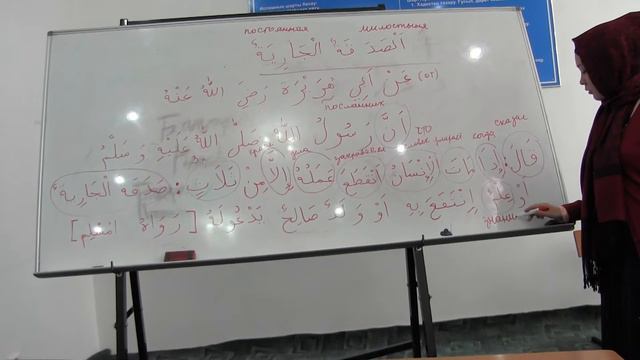 постоянная милостыня
الْصَدَقَةُ الْجَارِيَةُ
عَنْ أَبِي هُرَيْرَةَ رَضِيَ اللهُ عَنْهُ (от)
посланник
أَنَّ رَسُولَ اللهِ صَلَّى اللهُ عَلَيْهِ وَسَلَّمَ
что
сказал когда
قَالَ: إِذَا مَاتَ الْإِنْسَانُ انْقَطَعَ عَمَلُهُ إِلَّا مِنْ ثَلَاثٍ: صَدَقَةِ الْجَارِيَةِ
أَوْ عِلْمٍ اِنْتَفَعَ بِهِ أَوْ وَلَدٌ صَالِحٌ يَدْعُو لَهُ [رَوَاهُ مُسْلِم]
знания